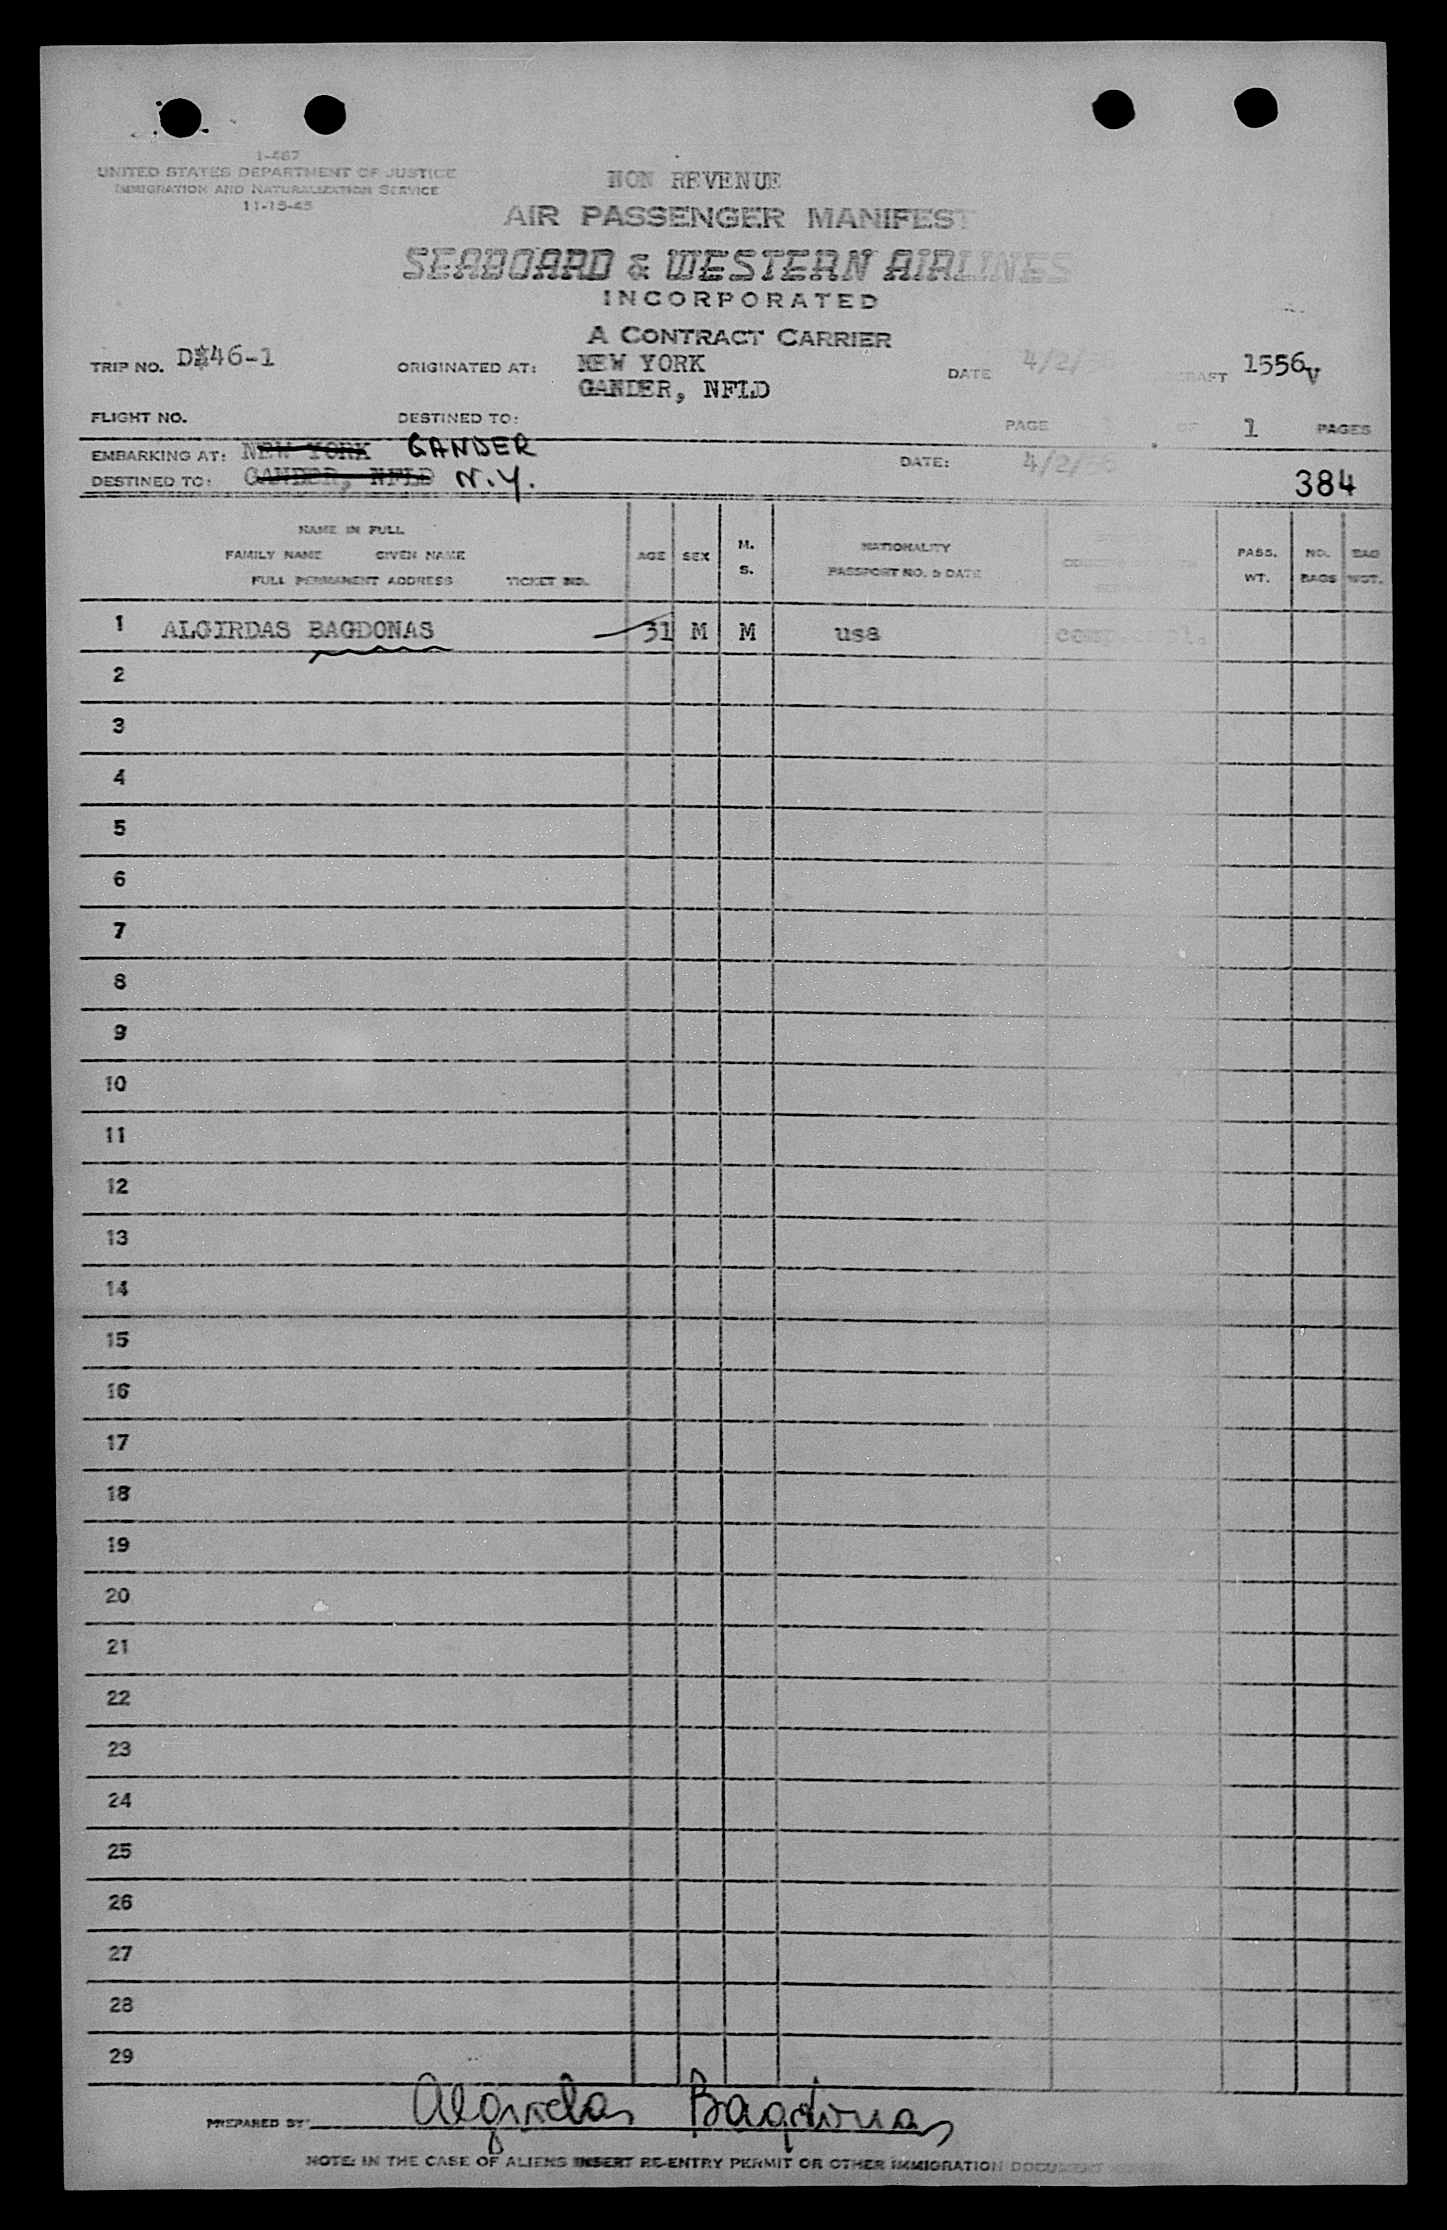 1-467
UNITED STATES DEPARTMENT OF JUSTICE
IMMIGRATION AND NATURALIZATION SERVICE
11-15-45
NON REVENUE
AIR PASSENGER MANIFEST
SEABOARD & WESTERN AIRLINES
INCORPORATED
A CONTRACT CARRIER
TRIP NO. D46-1 ORIGINATED AT: NEW YORK DATE 4/2/56 1556V
GANDER, NFLD
FLIGHT NO. DESTINED TO: PAGE OF 1 PAGES
EMBARKING AT: NEW YORK GANDER DATE: 4/2/56
DESTINED TO: GANDER, NFLD N.Y. 384
NAME IN FULL
FAMILY NAME GIVEN NAME AGE SEX M. S. NATIONALITY PASS. WT. NO. BAGS BAG WGT.
FULL PERMANENT ADDRESS TICKET NO. PASSPORT NO. & DATE
1 ALGIRDAS BAGDONAS 31 M M usa
2
3
4
5
6
7
8
9
10
11
12
13
14
15
16
17
18
19
20
21
22
23
24
25
26
27
28
29
PREPARED BY: Algirdas Bagdonas
NOTE: IN THE CASE OF ALIENS INSERT RE-ENTRY PERMIT OR OTHER IMMIGRATION DOCUMENT